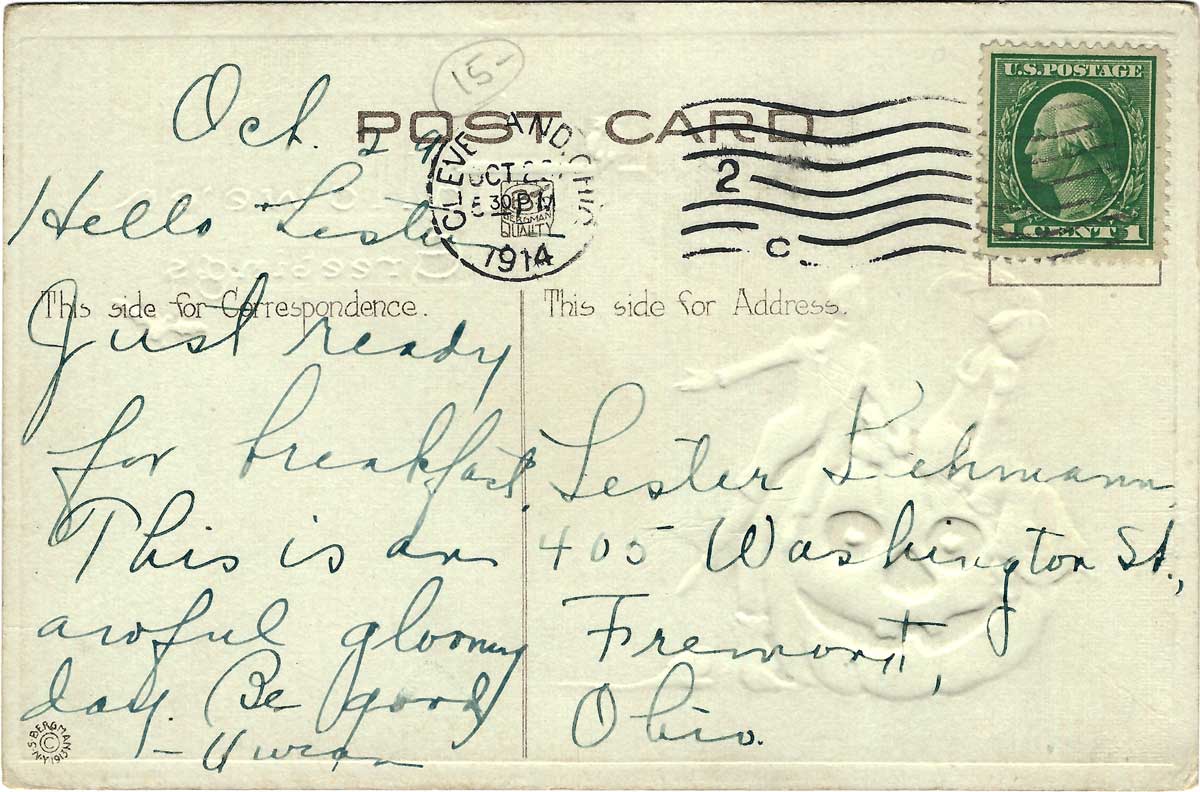 15-
Oct. 29
POST CARD
CLEVELAND, OHIO
OCT 2
5 30 PM
1914
BERGMAN
QUALITY
2
C
U.S. POSTAGE
1 CENT 1
Hello Lester
Greetings
This side for Correspondence.
This side for Address.
Just ready
for breakfast.
This is an
awful gloomy
day. Be good
Lester
405 Washington St.,
Fremont,
Ohio.
S. BERGMAN
N.Y.
©